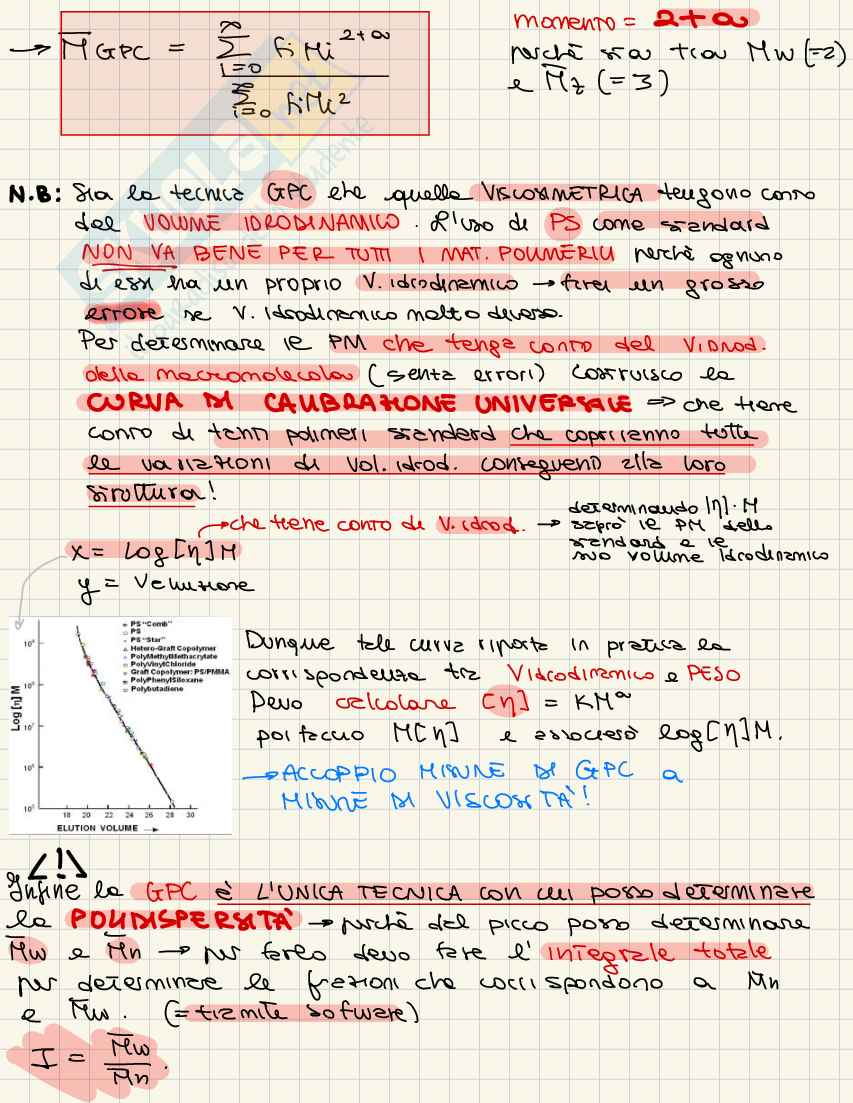 → M̅ GPC = ∑ᵢ₌₀^∞ fi Mi^(2+a) / ∑ᵢ₌₀^∞ fi Mi²
momento = 2+a
perché sia tra Mw (=2)
e M̅z (=3)
N.B: Sia la tecnica GPC che quella VISCOSIMETRICA tengono conto
del VOLUME IDRODINAMICO. L'uso di PS come standard
NON VA BENE PER TUTTI I MAT. POLIMERICI perché ognuno
di essi ha un proprio V. idrodinamico → farei un grosso
errore se V. idrodinamico molto diverso.
Per determinare le PM che tenga conto del V idrod.
della macromolecola (senza errori) costruisco la
CURVA DI CALIBRAZIONE UNIVERSALE ⇒ che tiene
conto di tanti polimeri standard che copriranno tutte
le variazioni di vol. idrod. conseguenti alla loro
struttura!
→ che tiene conto di V. idrod. → determinando [η]·M
saprò le PM dello
standard e le
suo volume idrodinamico
x = log [η] M
y = V eluizione
PS "Comb"
PS
PS "Star"
Hetero-Graft Copolymer
PolyMethylMethacrylate
PolyVinylChloride
Graft Copolymer: PS/PMMA
PolyPhenylSiloxane
Polybutadiene
Log [η] M
10⁹
10⁸
10⁷
10⁶
10⁵
18 20 22 24 26 28 30
ELUTION VOLUME →
Dunque tale curva riporta in pratica la
corrispondenza tra V idrodinamico e PESO
Devo calcolare [η] = KMᵃ
poi faccio M[η] e assocerò log[η]M.
→ ACCOPPIO MISURE DI GPC a
MISURE DI VISCOSITÀ!
/!\
Infine la GPC è L'UNICA TECNICA con cui posso determinare
la POLIDISPERSITÀ → perché dal picco posso determinare
M̅w e M̅n → per farlo devo fare l'integrale totale
per determinare le frazioni che corrispondono a M̅n
e M̅w. (= tramite software)
I = M̅w / M̅n.